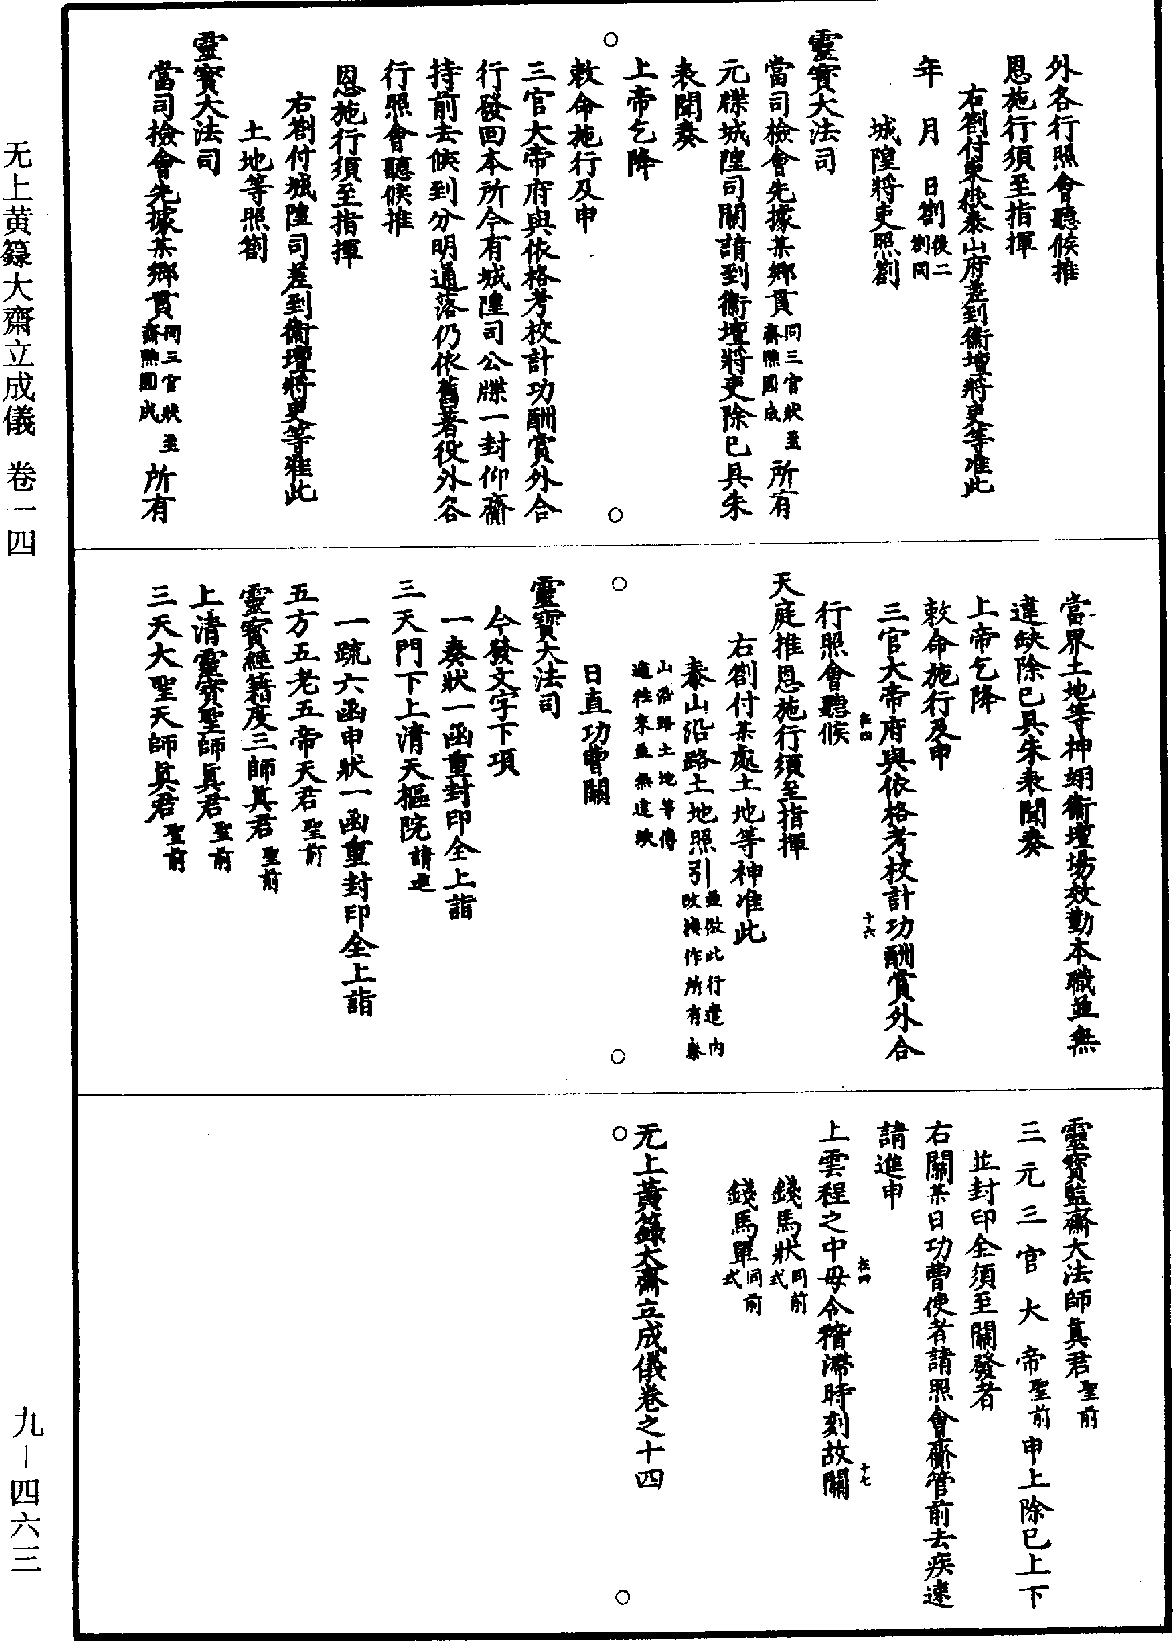 外各行照會聽候推
恩施行須至指揮
右劄付東嶽泰山府差到衛壇將吏等准此
年　月　日劄後二劄同
城隍將吏照劄
靈寶大法司
當司檢會先據某鄉貫同三官狀至齋熙國成所有
元牒城隍司關請到衛壇將吏除已具朱
表聞奏
上帝乞降
敕命施行及申
三官大帝府與依格考校計功酬賞外合
行發回本所今有城隍司公牒一封仰齎
持前去候到分明通落仍依舊著役外各
行照會聽候推
恩施行須至指揮
右劄付城隍司差到衛壇將吏等准此
土地等照劄
靈寶大法司
當司檢會先據某鄉貫同三官狀至齋熙國成所有
當界土地等神翊衛壇場效勤本職並無
違缺除已具朱表聞奏
上帝乞降
敕命施行及申
三官大帝府與依格考校計功酬賞外合
行照會聽候
天庭推恩施行須至指揮
右劄付某處土地等神准此
泰山沿路土地照引並倣此行遣內改換作所有泰
山沿路土地等傳遞往來並無違缺
日直功曹關
靈寶大法司
今發文字下項
一奏狀一函重封印全上詣
三天門下上清天樞院請進
一疏六函申狀一函重封印全上詣
五方五老五帝天君聖前
靈寶經籍度三師真君聖前
上清靈寶聖師真君聖前
三天大聖天師真君聖前
靈寶監齋大法師真君聖前
三元三官大帝聖前申上除已上下
並封印全須至關發者
右關某日功曹使者請照會齎管前去疾速
請進申
上雲程之中毋令稽滯時刻故關
錢馬狀同前式
錢馬單同前式
无上黃籙大齋立成儀卷之十四
无上黃籙大齋立成儀　卷一四
九－四六三